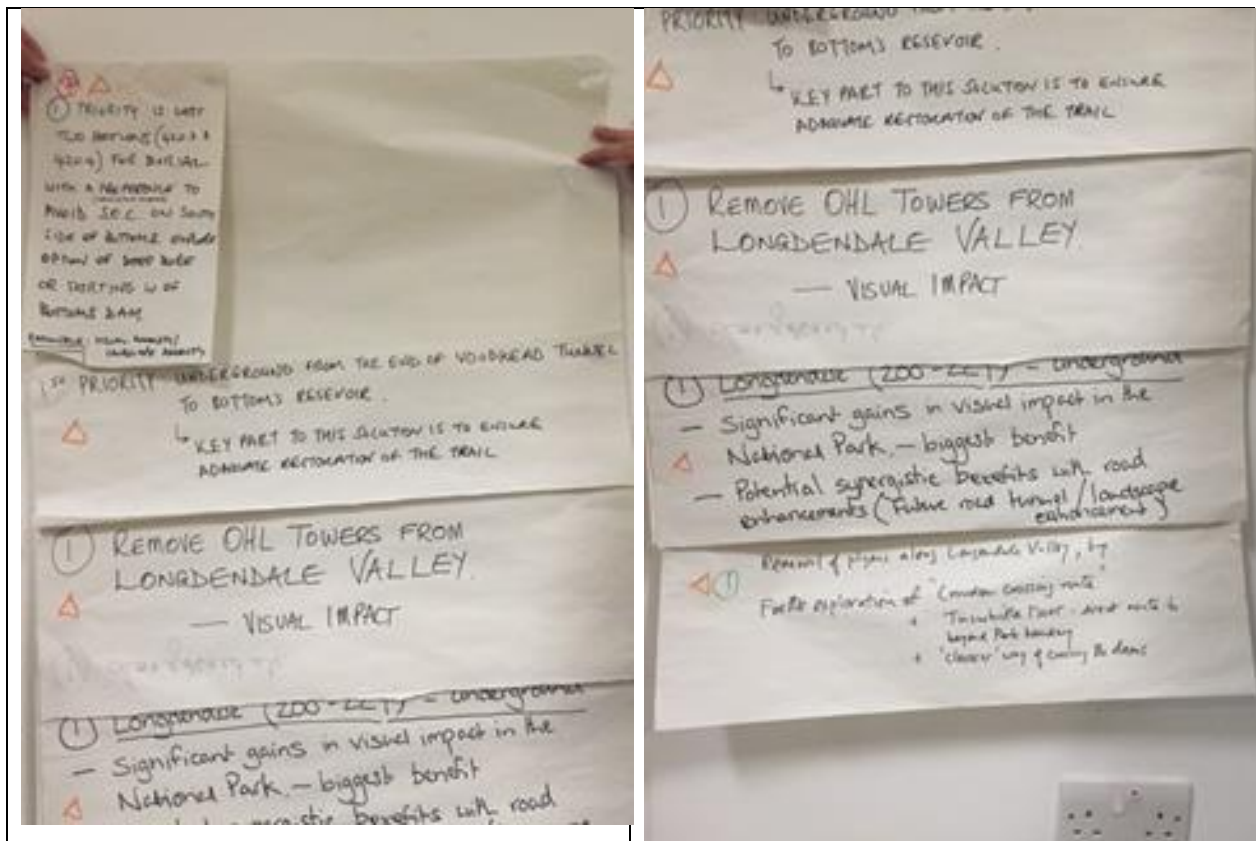 ① PRIORITY IS LAST
TWO OPTIONS
FOR BURIAL
WITH A PREFERENCE TO
AVOID SEC ON SOUTH
SIDE OF BOTTOMS
OPTION OF DEEP BORE
OR STARTING W OF
BOTTOMS DAM
1ST PRIORITY UNDERGROUND FROM THE END OF WOODHEAD TUNNEL
TO BOTTOM'S RESEVOIR.
↳ KEY PART TO THIS IS TO ENSURE
ADAQUATE RESTORATION OF THE TRAIL
① REMOVE OHL TOWERS FROM
LONGDENDALE VALLEY.
— VISUAL IMPACT
① Longdendale - underground
— Significant gains in visual impact in the
National Park. – biggest benefit
benefits with road
PRIORITY UNDERGROUND
TO BOTTOM'S RESEVOIR.
↳ KEY PART TO THIS IS TO ENSURE
ADAQUATE RESTORATION OF THE TRAIL
① REMOVE OHL TOWERS FROM
LONGDENDALE VALLEY.
— VISUAL IMPACT
① Longdendale - underground
— Significant gains in visual impact in the
National Park. – biggest benefit
— Potential synergistic benefits with road
enhancements (Future road tunnel / landscape
enhancement)
① Removal of along Valley, by
exploration of
+ route to
beyond Park boundary
+ 'cleverer' way of crossing the dams